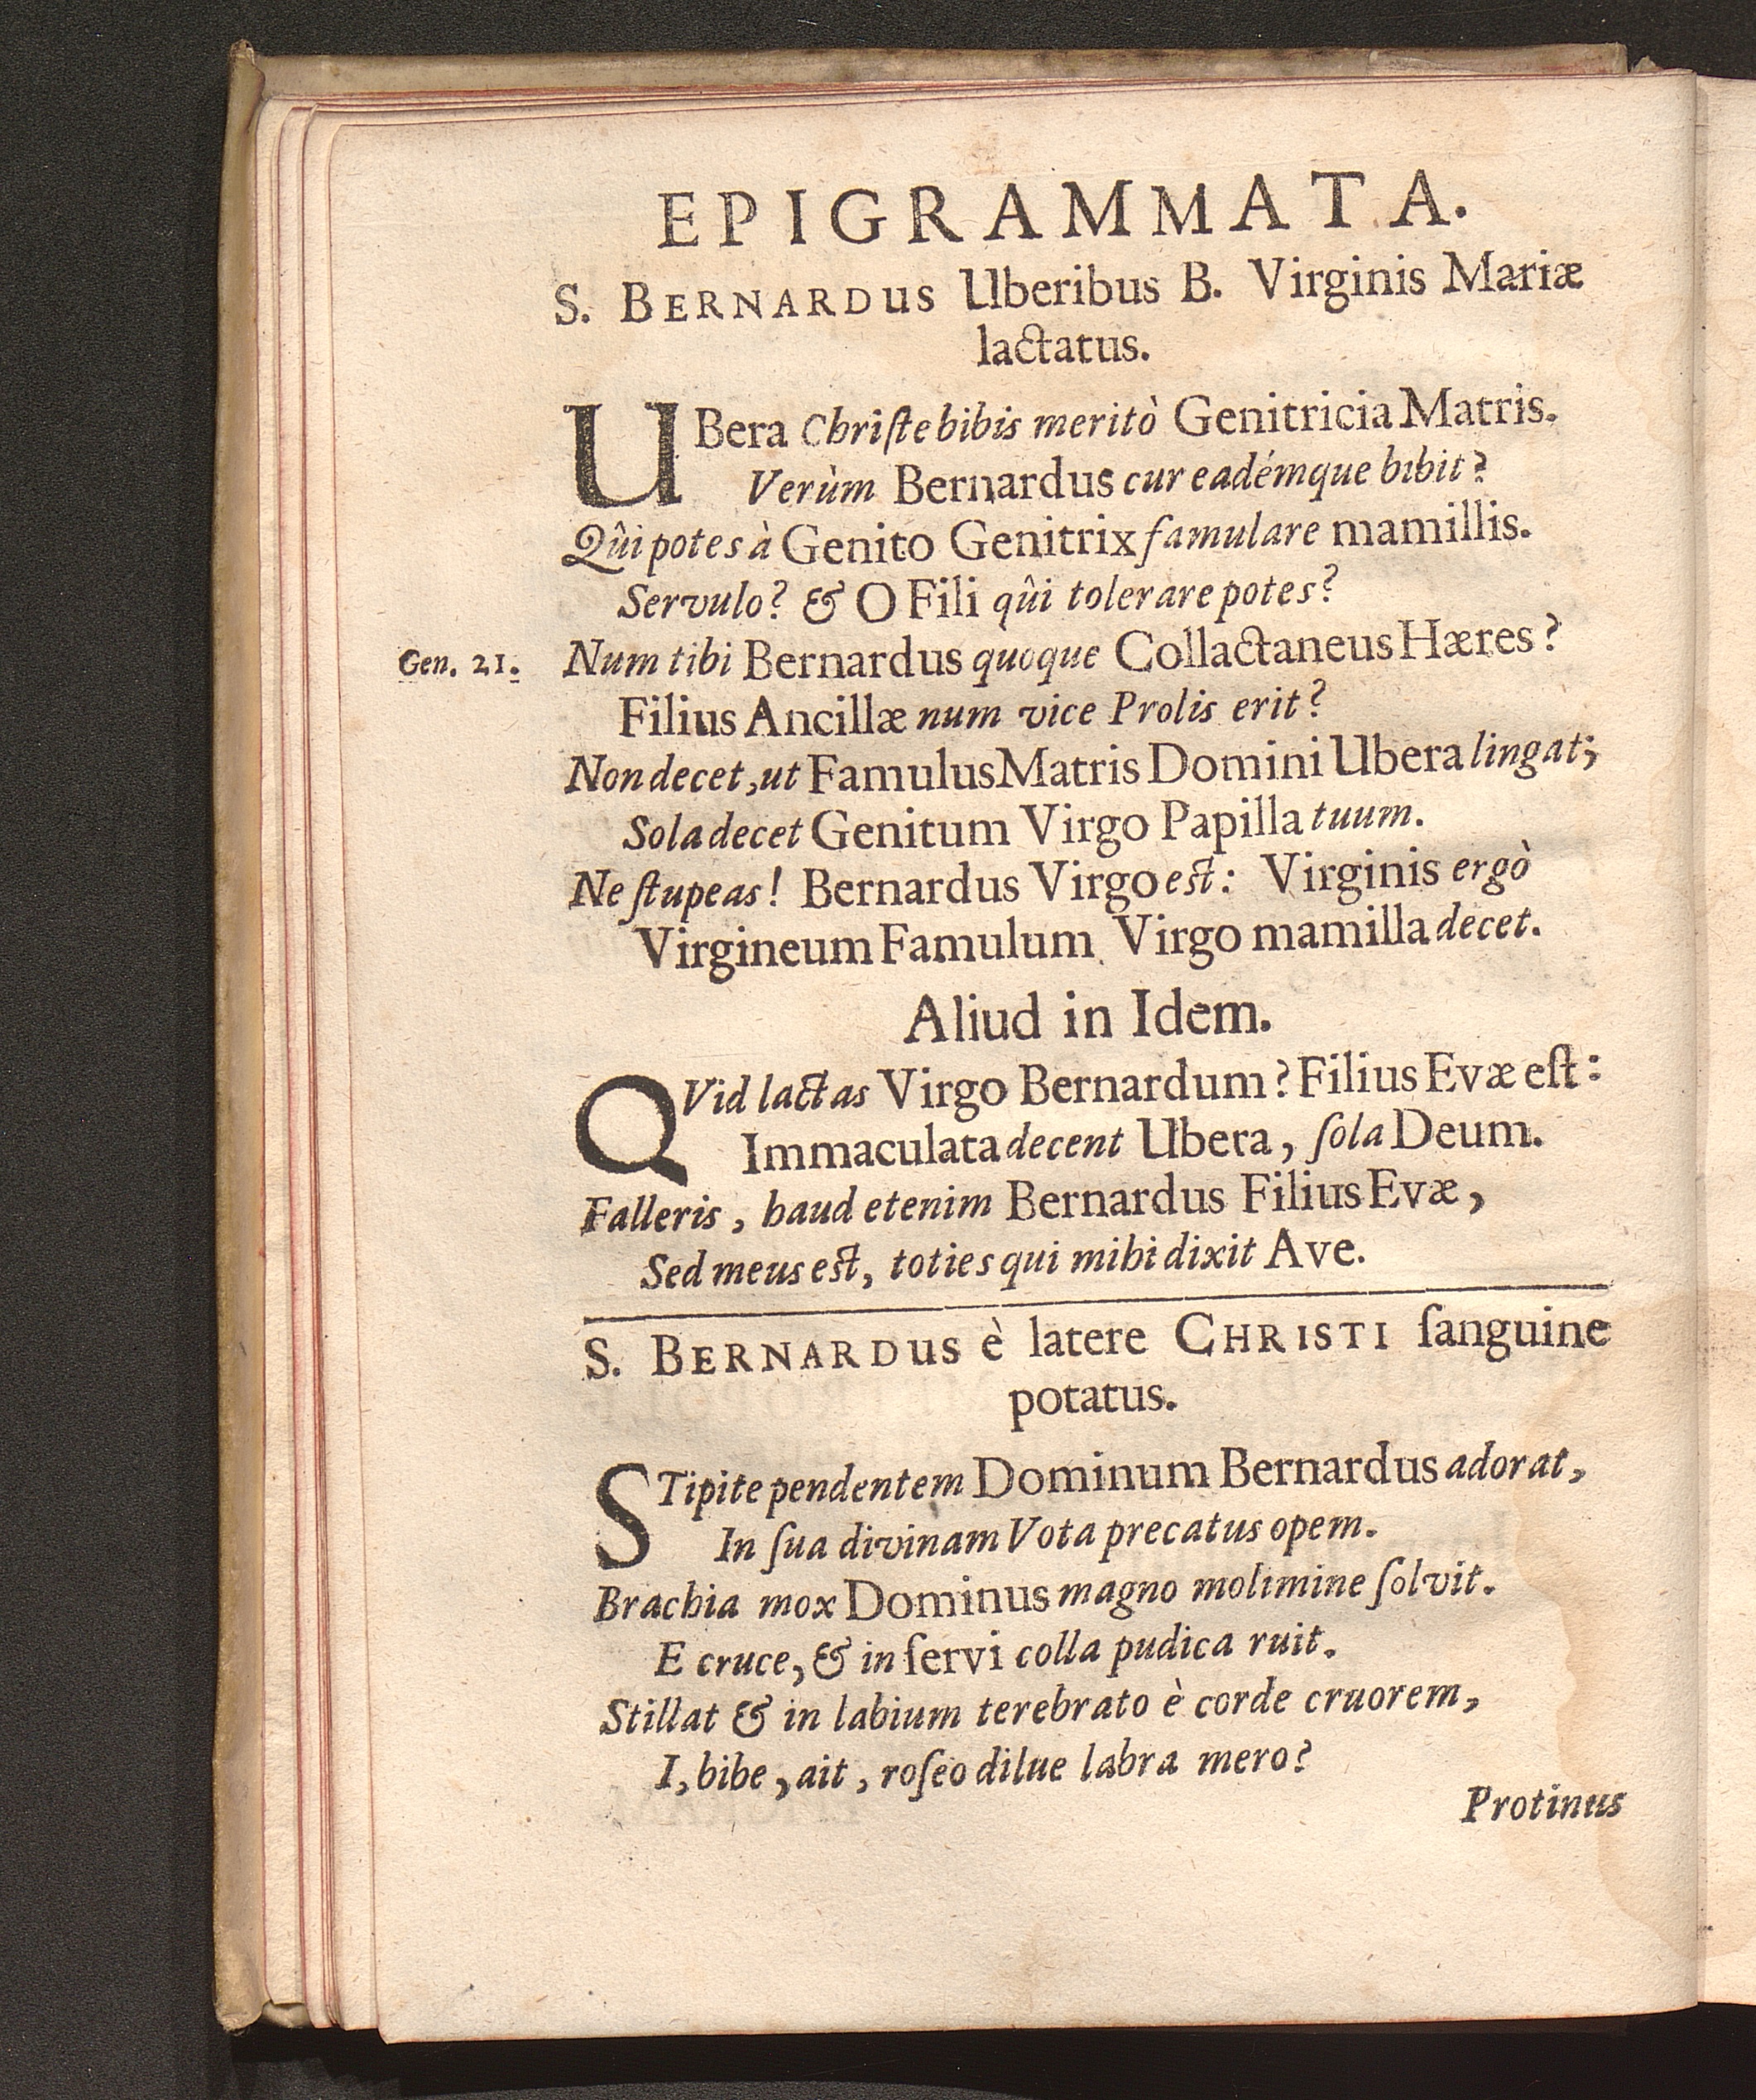 EPIGRAMMATA.
S. BERNARDUS Uberibus B. Virginis Mariæ
lactatus.
UBera Christe bibis meritò Genitricia Matris.
Verùm Bernardus cur eadémque bibit?
Qûi potes à Genito Genitrix famulare mamillis.
Servulo? & O Fili qûi tolerare potes?
Gen. 21. Num tibi Bernardus quoque Collactaneus Hæres?
Filius Ancillæ num vice Prolis erit?
Non decet, ut Famulus Matris Domini Ubera lingat;
Sola decet Genitum Virgo Papilla tuum.
Ne ſtupeas! Bernardus Virgo est: Virginis ergò
Virgineum Famulum Virgo mamilla decet.
Aliud in Idem.
QVid lactas Virgo Bernardum? Filius Evæ eſt:
Immaculata decent Ubera, ſola Deum.
Falleris, haud etenim Bernardus Filius Evæ,
Sed meus est, toties qui mihi dixit Ave.
S. BERNARDUS è latere CHRISTI ſanguine
potatus.
STipite pendentem Dominum Bernardus adorat,
In ſua divinam Vota precatus opem.
Brachia mox Dominus magno molimine ſolvit.
E cruce, & in ſervi colla pudica ruit.
Stillat & in labium terebrato è corde cruorem,
I, bibe, ait, roſeo dilue labra mero?
Protinus